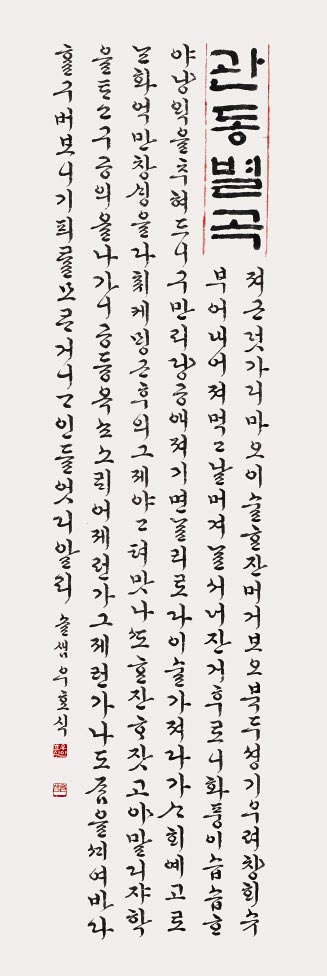 관동별곡
져근덧가디마오이술ᄒᆞᆫ잔머거보오북두셩기우려챵ᄒᆡ슈
부어내어저먹고날머겨ᄂᆞᆯ서너잔거후로니화풍이습습ᄒᆞ
야냥익을추혀드니구만리댱공애져기면ᄂᆞᆯ리로다이술가져다가ᄉᆞᄒᆡ예고로
ᄂᆞᆫ화억만창ᄉᆡᆼ을다ᄎᆔ케ᄆᆡᆼ근후의그제야고텨맛나ᄯᅩᄒᆞᆫ잔ᄒᆞ쟛고야말디쟈학
을ᄐᆞ고구공의올나가니공듕옥쇼소ᄅᆡ어제런가그제런가나도ᄌᆞᆷ을ᄭᆡ여바다
ᄒᆞᆯ구버보니기픠ᄅᆞᆯ모ᄅᆞ거니ᄀᆞ인들엇디알리 솔샘우효식